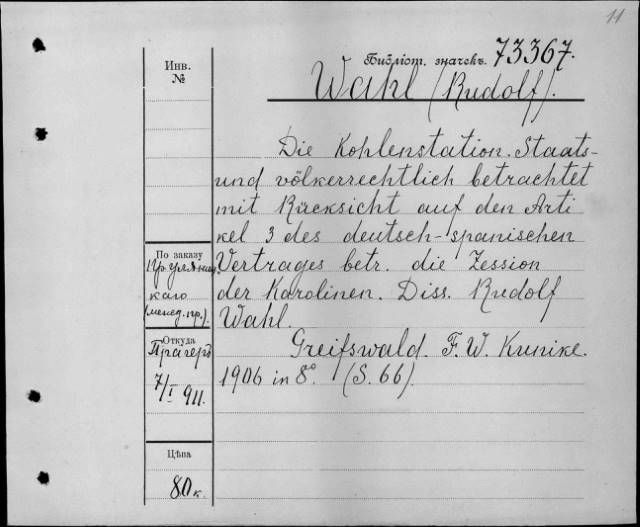 11
Инв.
№
Библіот. значекъ. 73367.
Wahl (Rudolf).
Die Kohlenstation. Staats-
und völkerrechtlich betrachtet
mit Rücksicht auf den Arti
kel 3 des deutsch-spanischen
Vertrages betr. die Zession
der Karolinen. Diss. Rudolf
Wahl.
Greifswald. F. W. Kunike.
1906 in 8°. (S. 66).
По заказу
каго
Откуда
Прагеръ
7/I 911.
Цѣна
80 к.